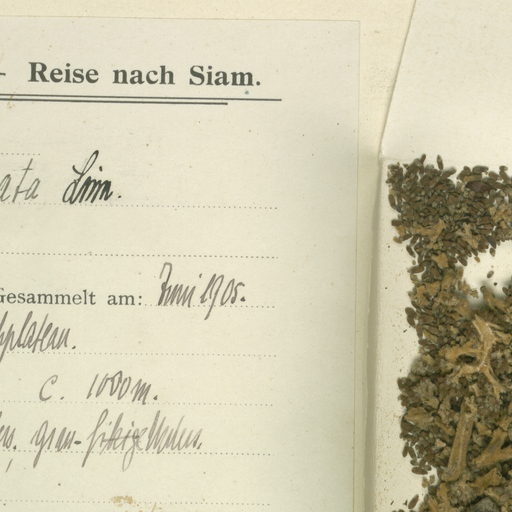 - Reise nach Siam.
ata Linn.
Gesammelt am: Juni 1905.
hplateau.
c. 1000 m.
grau-